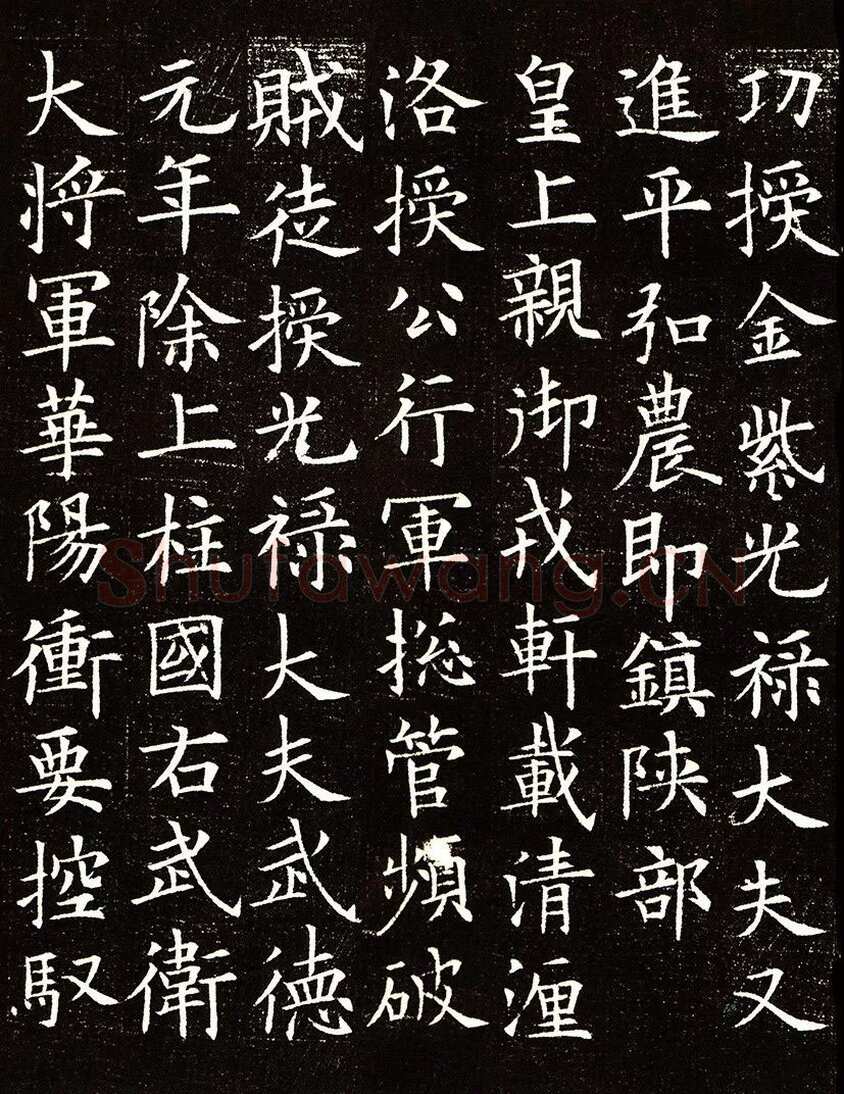 功授金紫光祿大夫又
進平弘農即鎮陝部
皇上親御戎軒載清瀍
洛授公行軍揔管頻破
賊徒授光祿大夫武德
元年除上柱國右武衛
大將軍華陽衝要控馭
Shufawang.CN